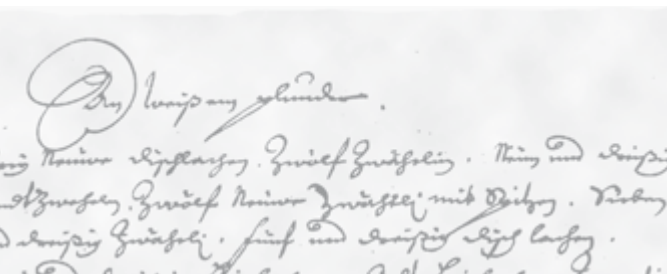 An weissem plunder.
Neüwe dischlachen. Zwölf Zwähelin. Neün und dreißi
Zwähelen. Zwölf Neüwe Zwähelj mit Spitzen. Sieben
dreißig Zwähelj. fünf und dreißig disch lachen.